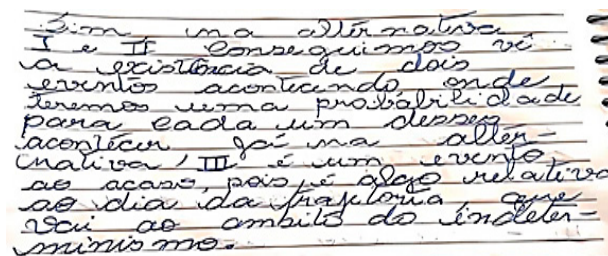 Sim na alternativa
I e II conseguimos vê
a existência de dois
eventos acontecendo onde
teremos uma probabilidade
para cada um desses
acontecer já na alter-
nativa, III é um evento
ao acaso, pois é algo relativo
ao dia da trajetória, que
vai ao ambito do indeter-
minismo.